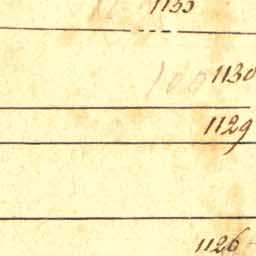 1135
100 1130
1129
1126